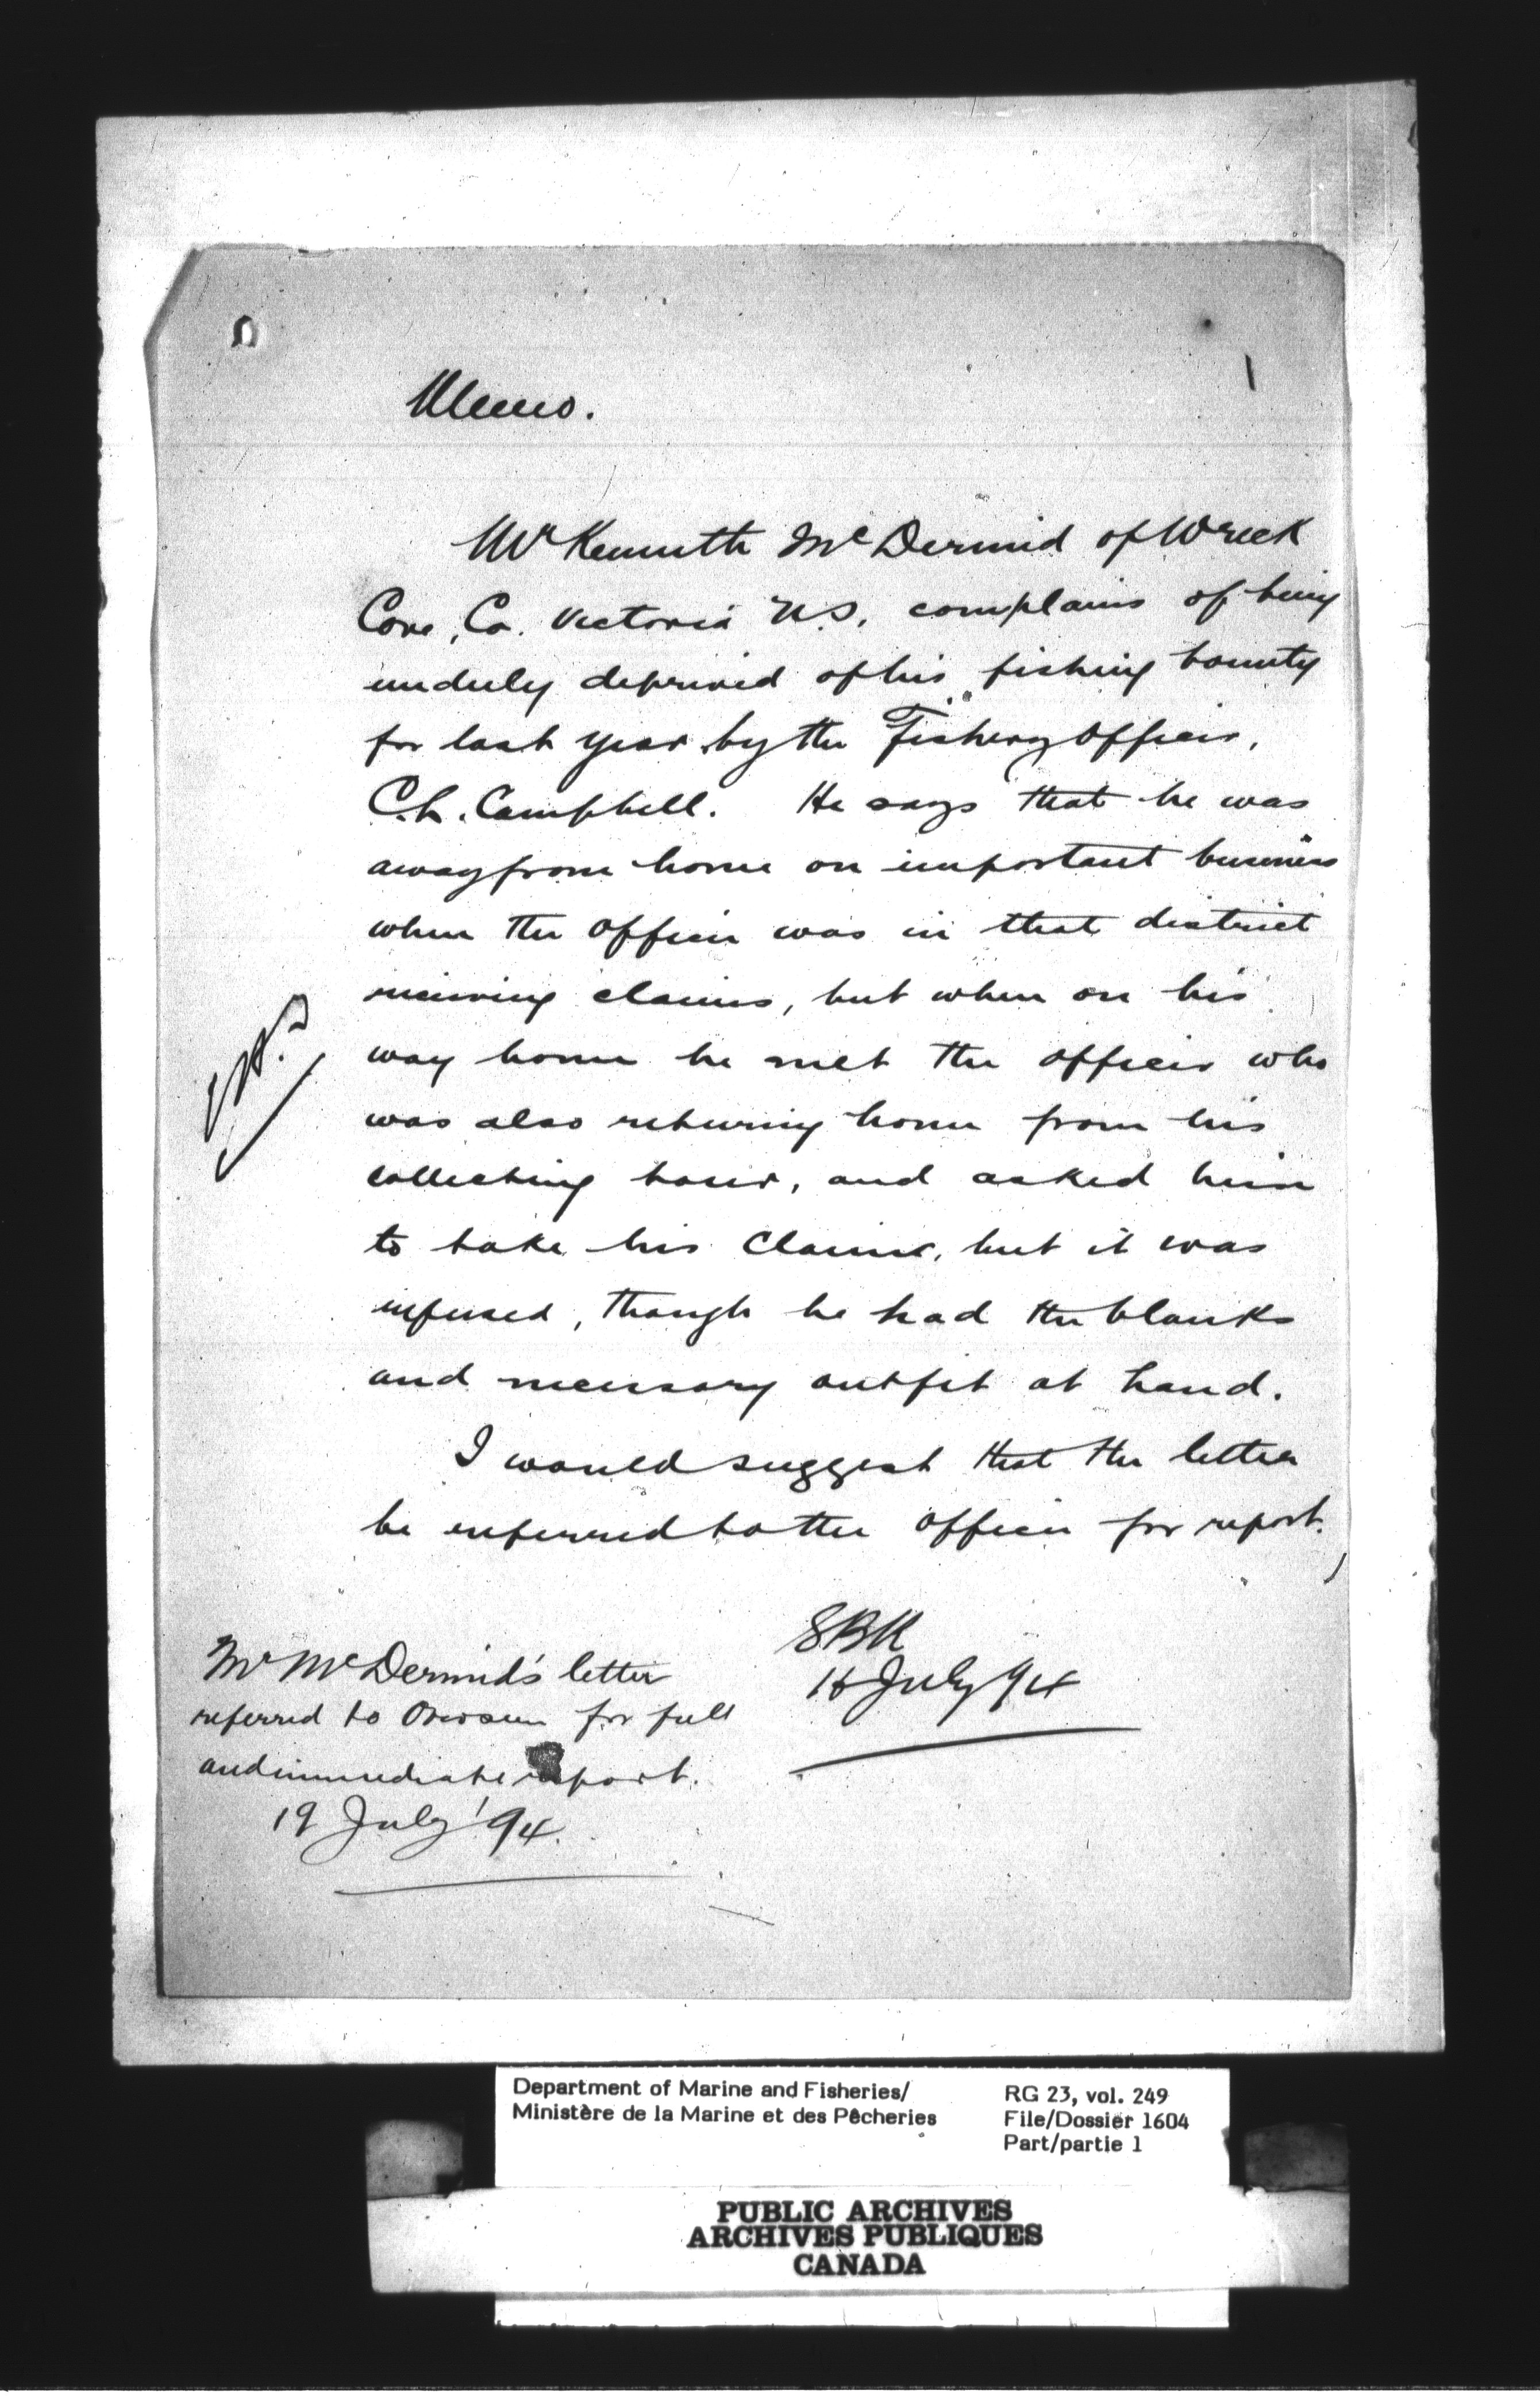 Memo.
Mr Kenneth McDermid of Wreck
Cove, Co. Victoria N.S. complains of being
unduly deprived of his fishing bounty
for last year by the Fishery Officer,
C.L. Campbell. He says that he was
away from home on important business
when the officer was in that district
receiving claims, but when on his
way home he met the officer who
was also returning home from his
collecting tour, and asked him
to take his claim, but it was
refused, though he had the blanks
and necessary outfit at hand.
I would suggest that the letter
be referred to the officer for report.
SBK
July 94
Mr McDermid's letter
referred to for full
and immediate report.
19 July '94.
Department of Marine and Fisheries/
Ministère de la Marine et des Pêcheries
RG 23, vol. 249
File/Dossier 1604
Part/partie 1
PUBLIC ARCHIVES
ARCHIVES PUBLIQUES
CANADA